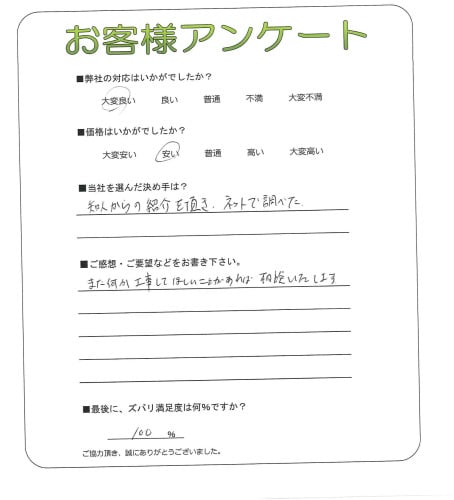 お客様アンケート
■弊社の対応はいかがでしたか？
大変良い 良い 普通 不満 大変不満
■価格はいかがでしたか？
大変安い 安い 普通 高い 大変高い
■当社を選んだ決め手は？
知人からの紹介を頂き、ネットで調べた
■ご感想・ご要望などをお書き下さい。
また何か工事してほしいことがあれば相談いたします
■最後に、ズバリ満足度は何%ですか？
100 %
ご協力頂き、誠にありがとうございました。